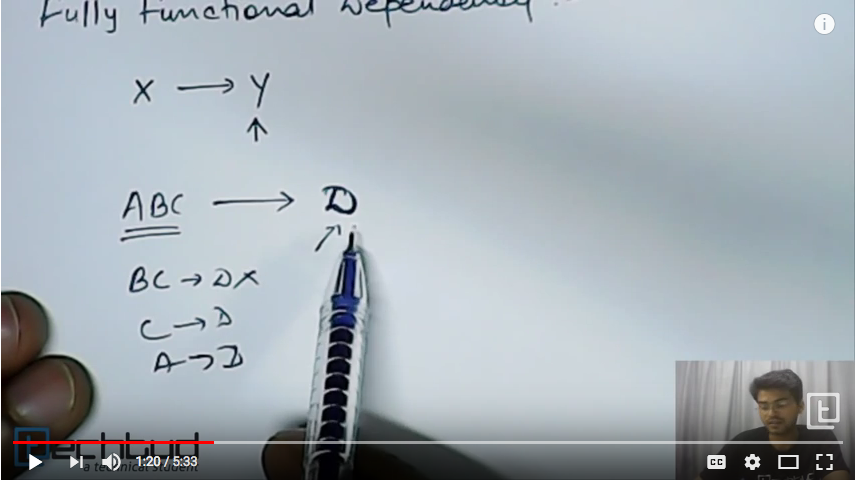 Fully Functional Dependency
X → Y
↑
ABC → D
BC → D X
C → D
A → D
techtud
a technical student
1:20 / 5:33
CC